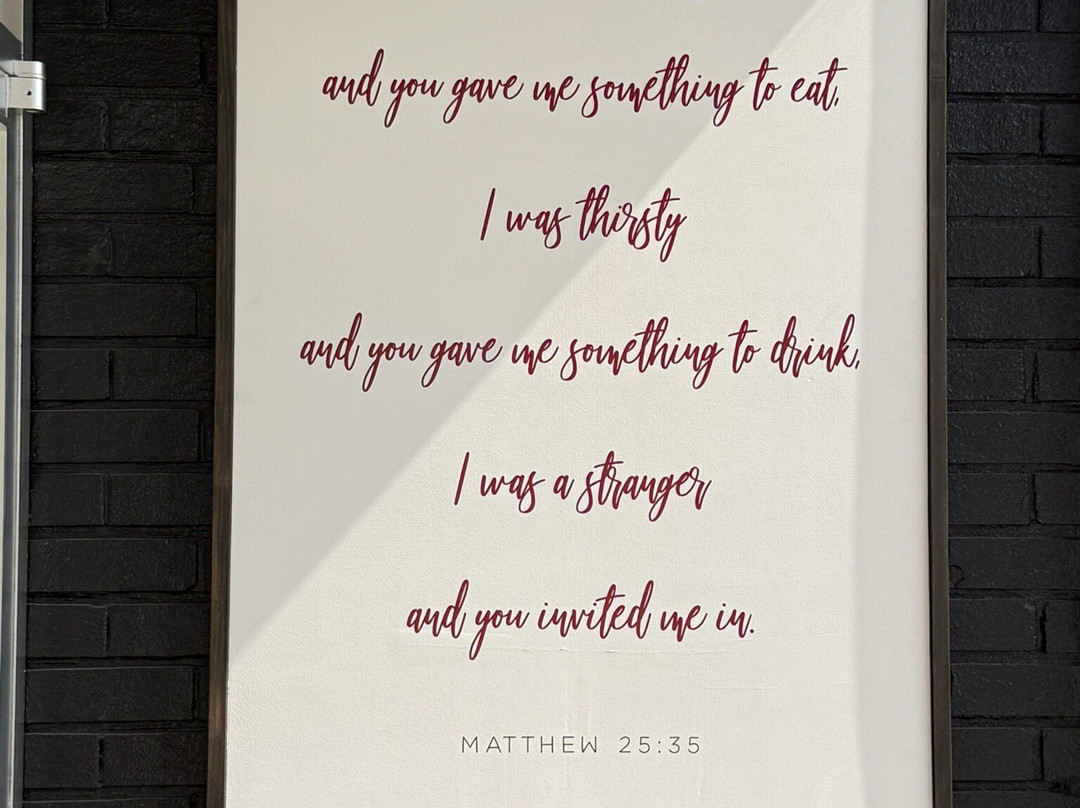 and you gave me something to eat,
I was thirsty
and you gave me something to drink,
I was a stranger
and you invited me in.
MATTHEW 25:35